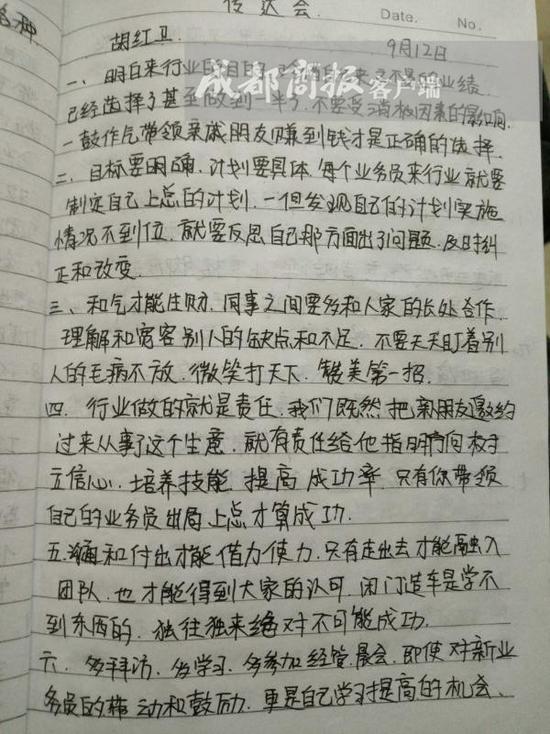 传达会.
Date. No.
胡红卫.
9月12日
成都商报客户端
一、明白来行业的目的
已经选择了甚至做到一半了.不要受消极因素的影响.
一鼓作气带领亲戚朋友赚到钱才是正确的选择.
二、目标要明确.计划要具体.每个业务员来行业就要
制定自己上总的计划.一但发现自己的计划实施
情况不到位.就要反思自己那方面出了问题.及时纠
正和改变.
三、和气才能生财.同事之间要多和人家的长处合作.
理解和宽容别人的缺点和不足.不要天天盯着别
人的毛病不放.微笑打天下.赞美第一招.
四.行业做的就是责任.我们既然把亲朋友邀约
过来从事了这个生意.就有责任给他指明方向.树
立信心.培养技能.提高成功率.只有你带领
自己的业务员出局上总才算成功.
五.沟通和付出才能借力使力.只有走出去才能融入
团队.也才能得到大家的认可.闭门造车是学不
到东西的.独往独来绝对不可能成功.
六.多拜访.多学习.多参加经管晨会.即使对新业
务员的带动和鼓励.更是自己学习提高的机会、